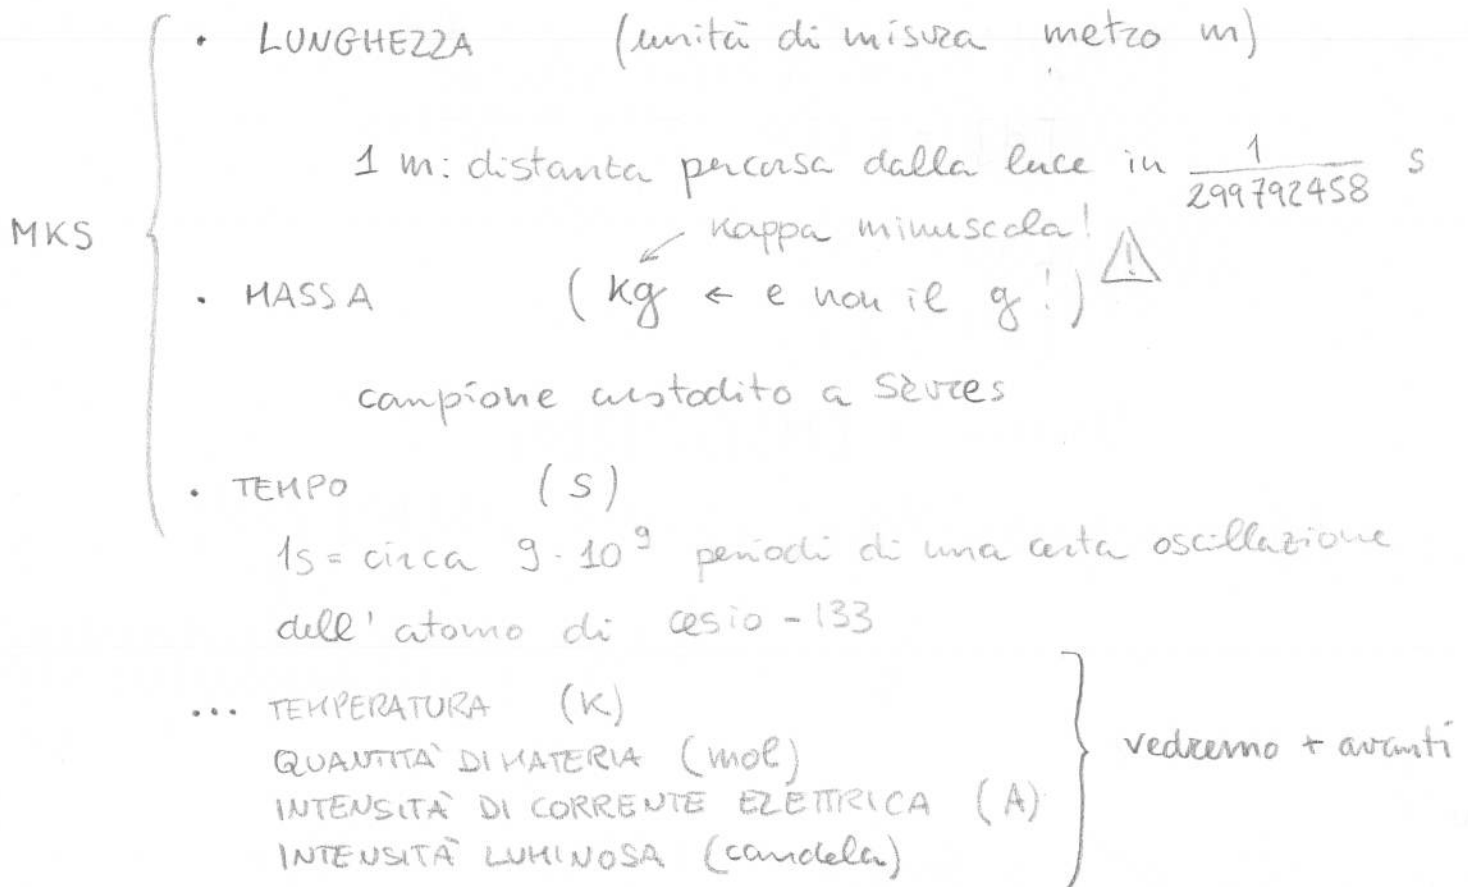 • LUNGHEZZA (unità di misura metro m)
1 m: distanza percorsa dalla luce in 1/299792458 s
MKS
kappa minuscola!
• MASSA (kg ← e non il g!) ⚠
campione custodito a Sèvres
• TEMPO (s)
1s = circa 9·10⁹ periodi di una certa oscillazione
dell'atomo di cesio-133
... TEMPERATURA (K)
QUANTITÀ DI MATERIA (mol)
vedremo + avanti
INTENSITÀ DI CORRENTE ELETTRICA (A)
INTENSITÀ LUMINOSA (candela)